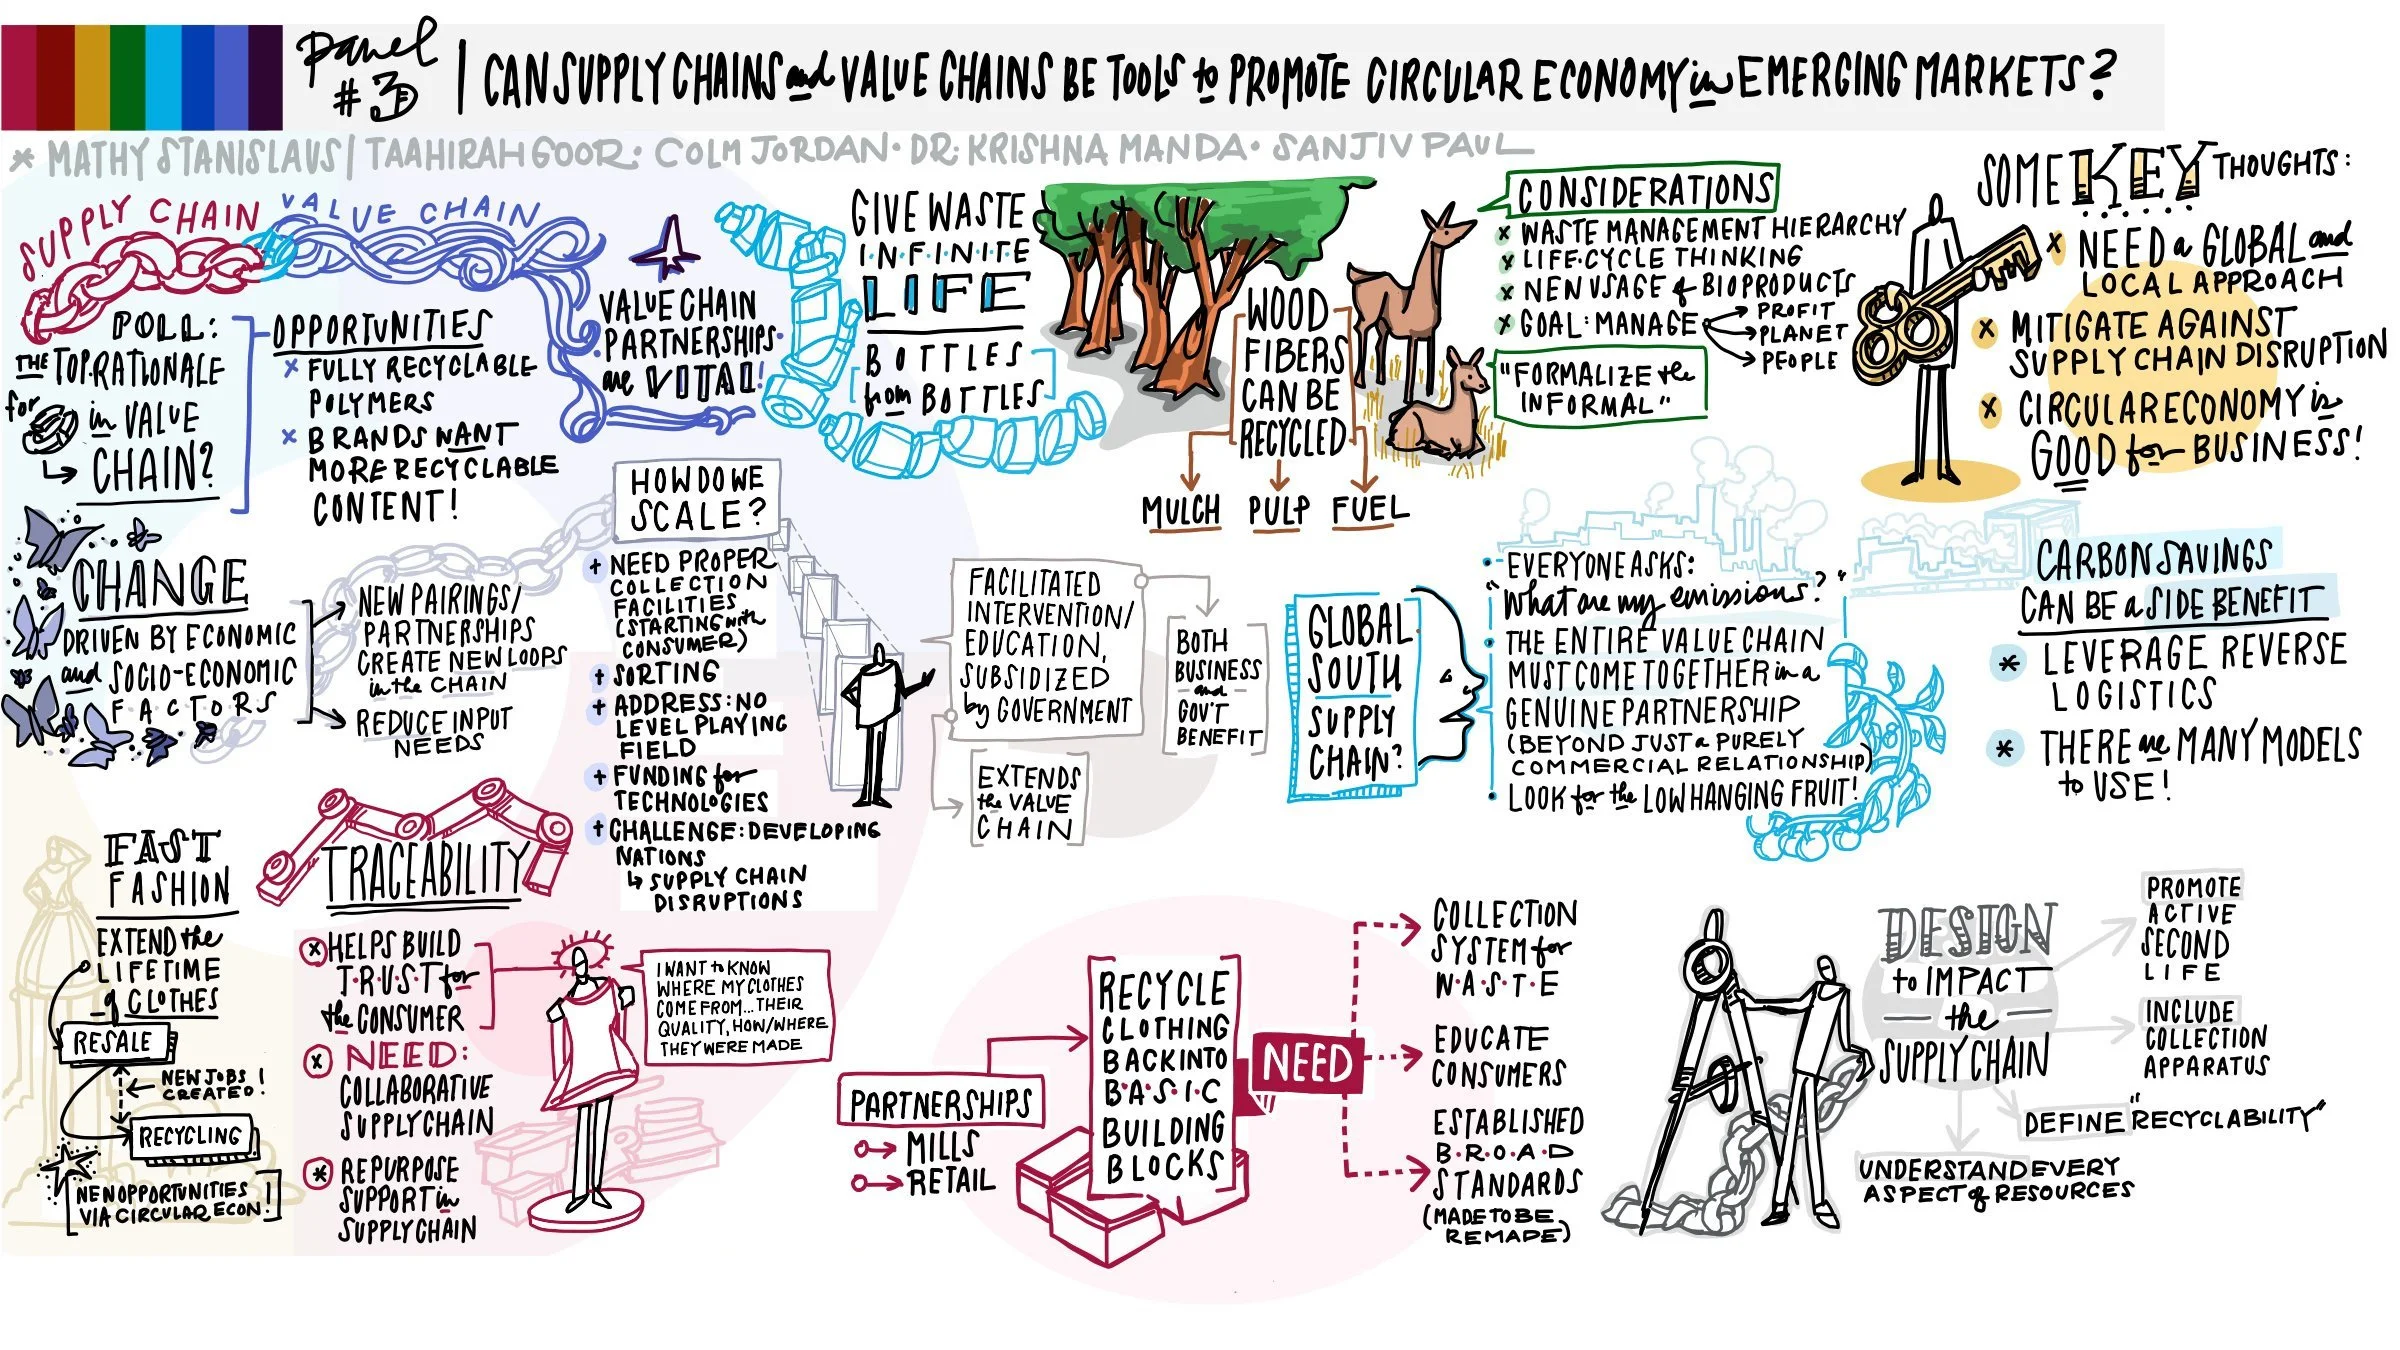 Panel #3 | CAN SUPPLY CHAINS and VALUE CHAINS BE TOOLS to PROMOTE CIRCULAR ECONOMY in EMERGING MARKETS?
* MATHY STANISLAUS | TAAHIRAH GOOR • COLM JORDAN • DR. KRISHNA MANDA • SANJIV PAUL
SUPPLY CHAIN
VALUE CHAIN
POLL:
THE TOP RATIONALE
for
in VALUE
CHAIN?
OPPORTUNITIES
x FULLY RECYCLABLE
POLYMERS
x BRANDS WANT
MORE RECYCLABLE
CONTENT!
VALUE CHAIN
PARTNERSHIPS
are VITAL!
GIVE WASTE
I•N•F•I•N•I•T•E
LIFE
BOTTLES
from BOTTLES
WOOD
FIBERS
CAN BE
RECYCLED
MULCH
PULP
FUEL
CONSIDERATIONS
x WASTE MANAGEMENT HIERARCHY
x LIFE•CYCLE THINKING
x NEW USAGE of BIOPRODUCTS
x GOAL: MANAGE
PROFIT
PLANET
PEOPLE
"FORMALIZE the
INFORMAL"
SOME KEY THOUGHTS:
x NEED a GLOBAL and
LOCAL APPROACH
x MITIGATE AGAINST
SUPPLY CHAIN DISRUPTION
x CIRCULAR ECONOMY is
GOOD for BUSINESS!
CHANGE
DRIVEN BY ECONOMIC
and SOCIO-ECONOMIC
FACTORS
NEW PAIRINGS/
PARTNERSHIPS
CREATE NEW LOOPS
in the CHAIN
REDUCE INPUT
NEEDS
HOW DO WE
SCALE?
+ NEED PROPER
COLLECTION
FACILITIES
(STARTING with
CONSUMER)
+ SORTING
+ ADDRESS: NO
LEVEL PLAYING
FIELD
+ FUNDING for
TECHNOLOGIES
+ CHALLENGE: DEVELOPING
NATIONS
↳ SUPPLY CHAIN
DISRUPTIONS
FACILITATED
INTERVENTION/
EDUCATION,
SUBSIDIZED
by GOVERNMENT
BOTH
BUSINESS
and
GOV'T
BENEFIT
EXTENDS
the VALUE
CHAIN
GLOBAL
SOUTH
SUPPLY
CHAIN?
• EVERYONE ASKS:
"What are my emissions?"
• THE ENTIRE VALUE CHAIN
MUST COME TOGETHER in a
GENUINE PARTNERSHIP
(BEYOND JUST a PURELY
COMMERCIAL RELATIONSHIP)
• LOOK for the LOW HANGING FRUIT!
CARBON SAVINGS
CAN BE a SIDE BENEFIT
* LEVERAGE REVERSE
LOGISTICS
* THERE are MANY MODELS
to USE!
FAST
FASHION
EXTEND the
LIFETIME
of CLOTHES
RESALE
NEW JOBS!
CREATED!
RECYCLING
NEW OPPORTUNITIES
VIA CIRCULAR ECON!
TRACEABILITY
x HELPS BUILD
T•R•U•S•T for
the CONSUMER
x NEED:
COLLABORATIVE
SUPPLY CHAIN
* REPURPOSE
SUPPORT in
SUPPLY CHAIN
I WANT to KNOW
WHERE MY CLOTHES
COME FROM... THEIR
QUALITY, HOW/WHERE
THEY WERE MADE
PARTNERSHIPS
MILLS
RETAIL
RECYCLE
CLOTHING
BACK INTO
B•A•S•I•C
BUILDING
BLOCKS
NEED
COLLECTION
SYSTEM for
W•A•S•T•E
EDUCATE
CONSUMERS
ESTABLISHED
B•R•O•A•D
STANDARDS
(MADE TO BE
REMADE)
DESIGN
to IMPACT
— the —
SUPPLY CHAIN
PROMOTE
ACTIVE
SECOND
LIFE
INCLUDE
COLLECTION
APPARATUS
DEFINE "RECYCLABILITY"
UNDERSTAND EVERY
ASPECT of RESOURCES